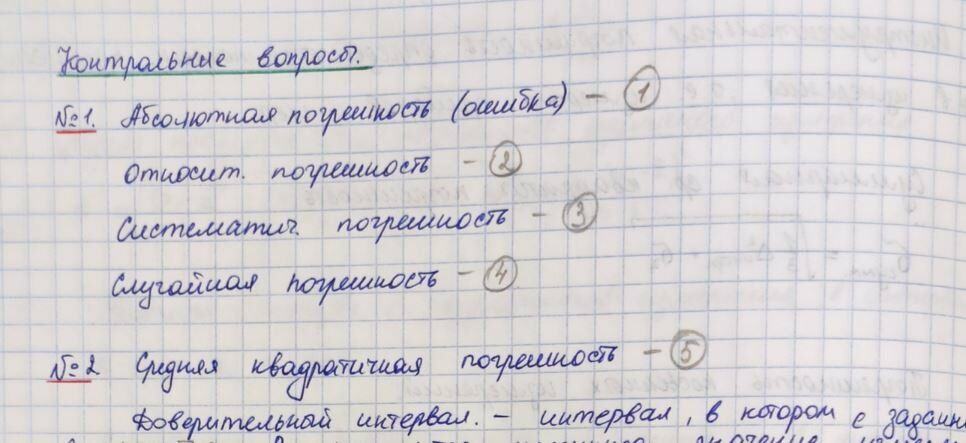 Контрольные вопросы.
№1. Абсолютная погрешность (ошибка) - 1
Относит. погрешность - 2
Систематич. погрешность - 3
Случайная погрешность - 4
№2 Средняя квадратичная погрешность - 5
Доверительный интервал. - интервал, в котором с заданн